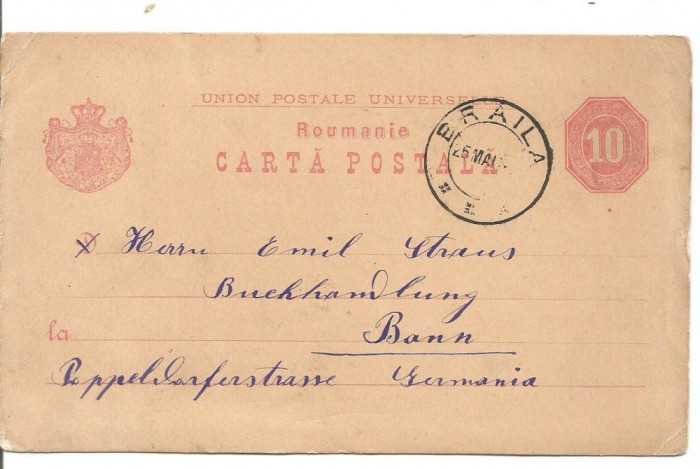 UNION POSTALE UNIVERSELLE
Roumanie
CARTĂ POSTALĂ
BRAILA
25 MAI
10
D
Herrn Emil Straus
Buchhandlung
la
Bonn
Poppelsdorferstrasse Germania